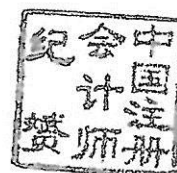 中国注册
会计师
纪